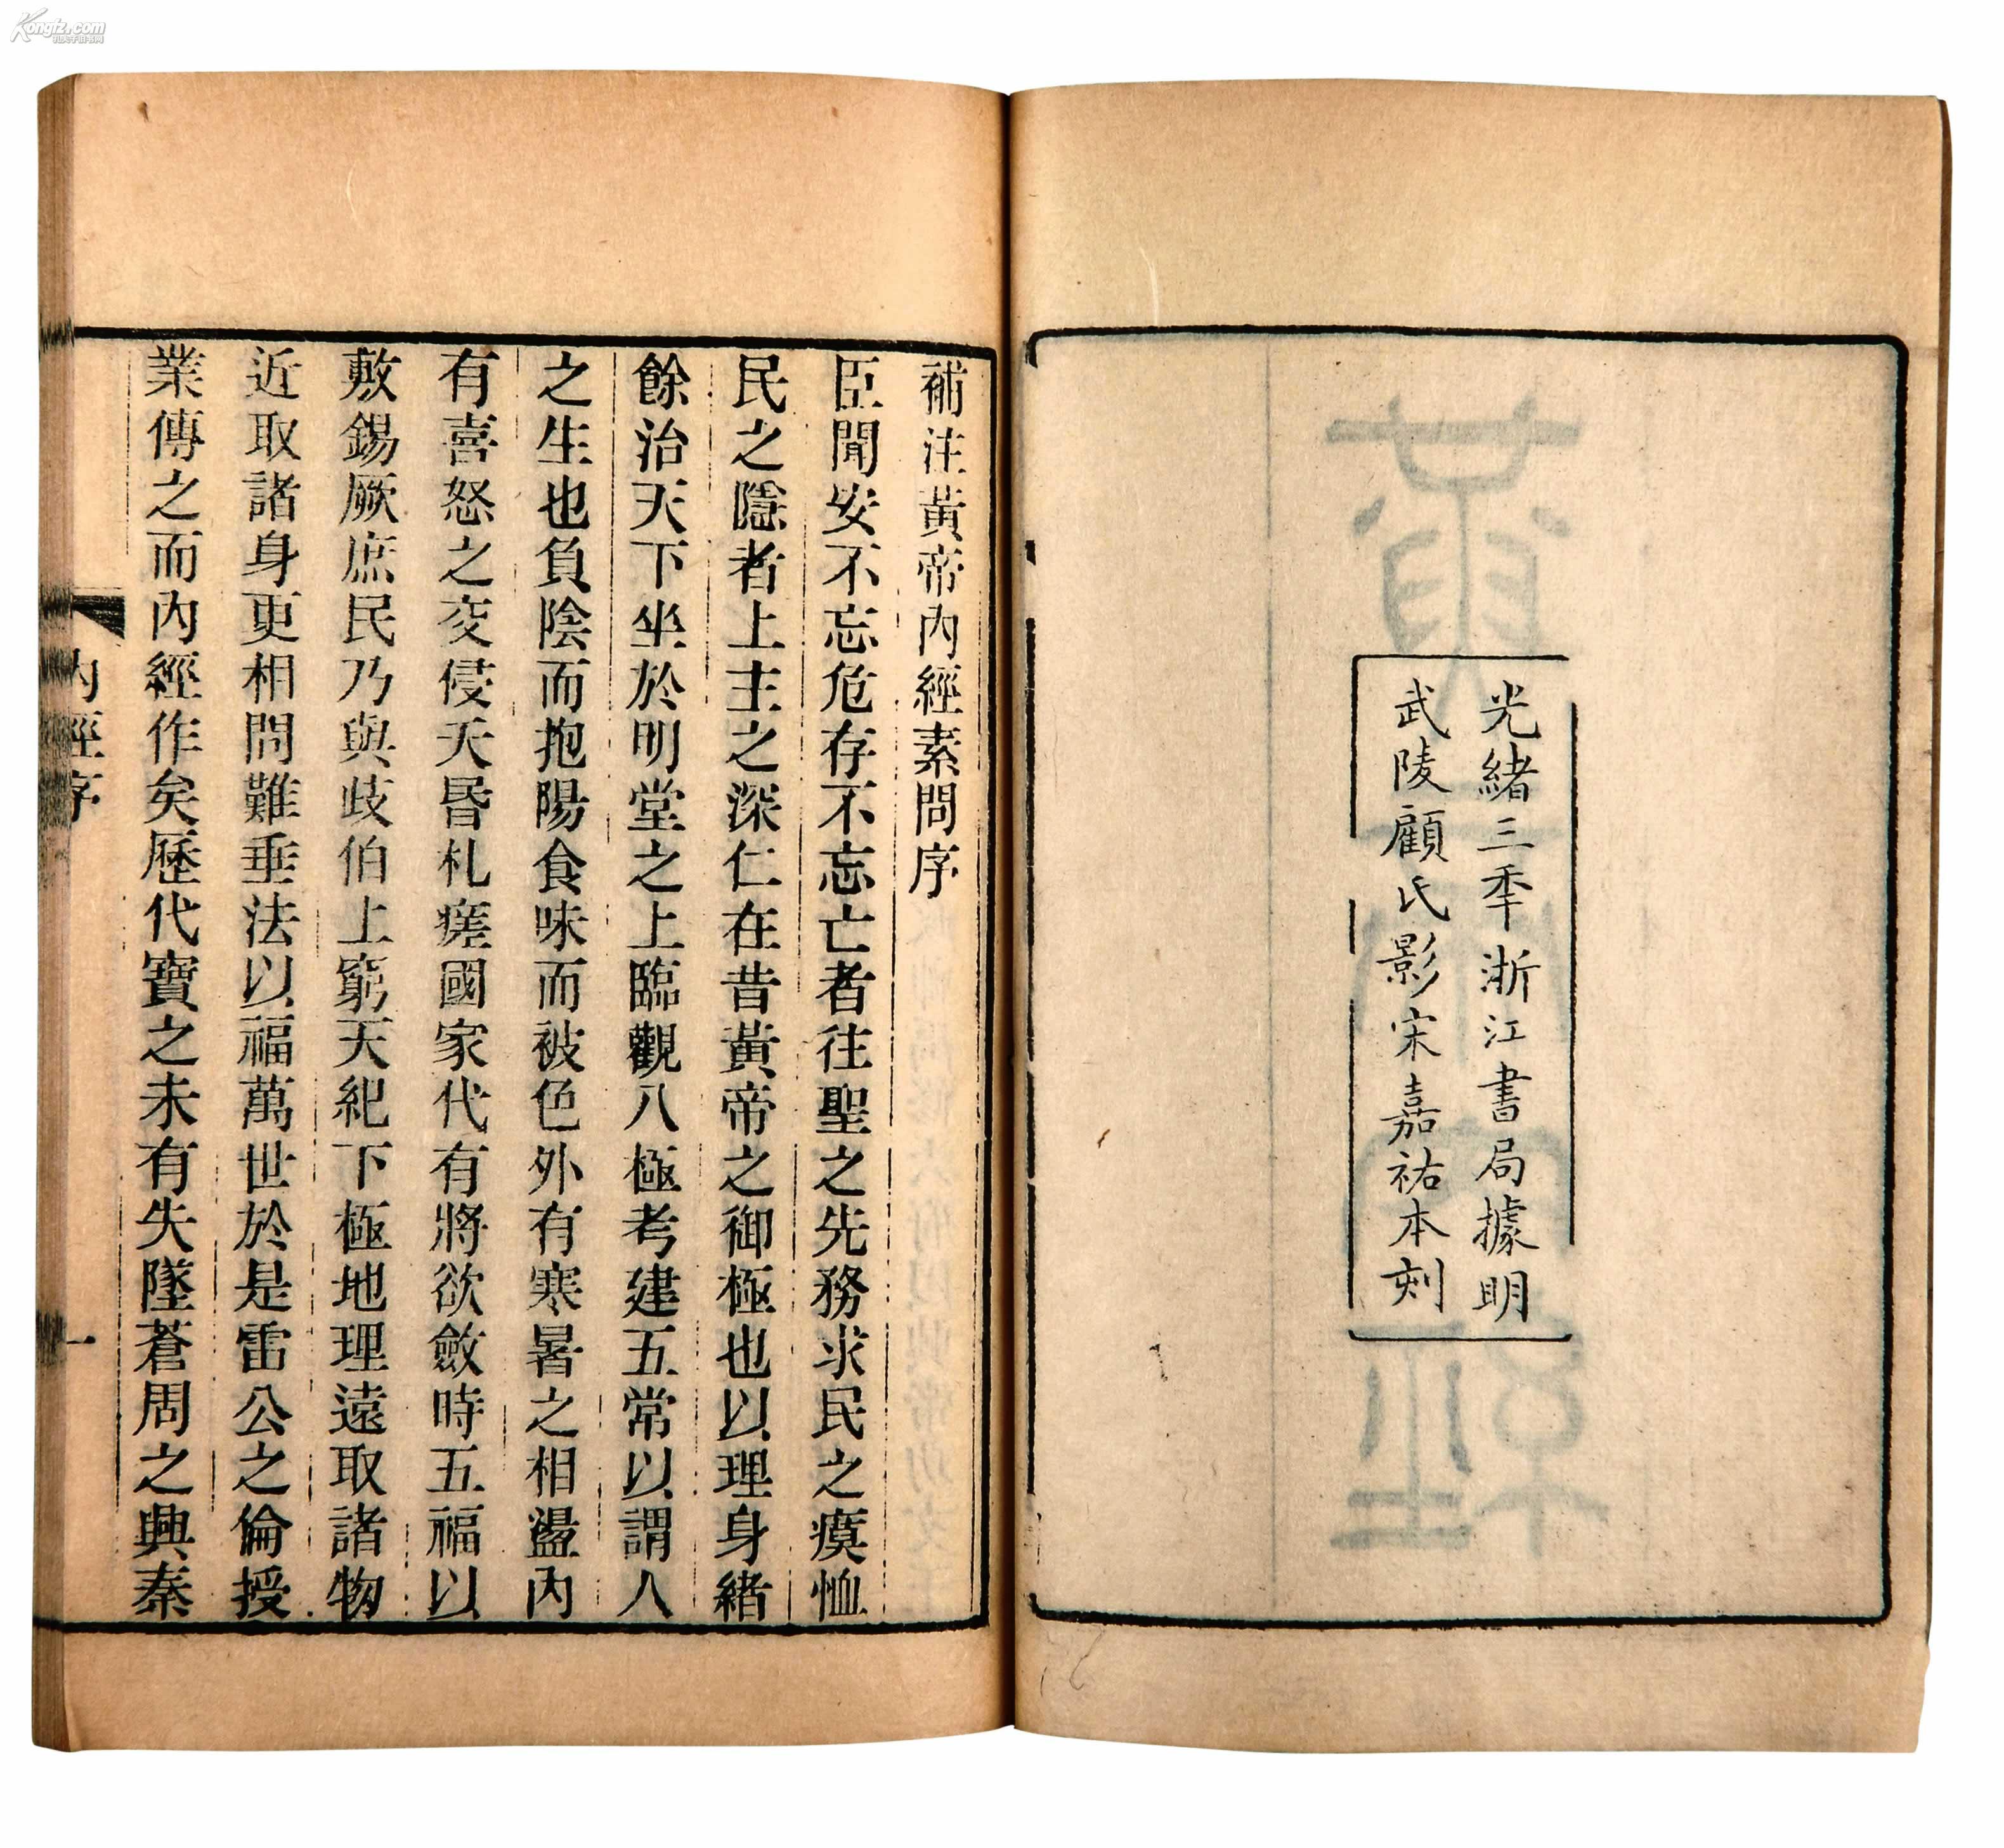 光緒三秊浙江書局據明
武陵顧氏影宋嘉祐本刻
補注黃帝內經素問序
臣聞安不忘危存不忘亡者往聖之先務求民之瘼恤
民之隱者上主之深仁在昔黃帝之御極也以理身緒
餘治天下坐於明堂之上臨觀八極考建五常以謂人
之生也負陰而抱陽食味而被色外有寒暑之相盪內
有喜怒之交侵夭昬札瘥國家代有將欲斂時五福以
敷錫厥庶民乃與歧伯上窮天紀下極地理遠取諸物
近取諸身更相問難垂法以福萬世於是雷公之倫授
業傳之而內經作矣歷代寶之未有失墜蒼周之興秦
內經序
一
Kongfz.com